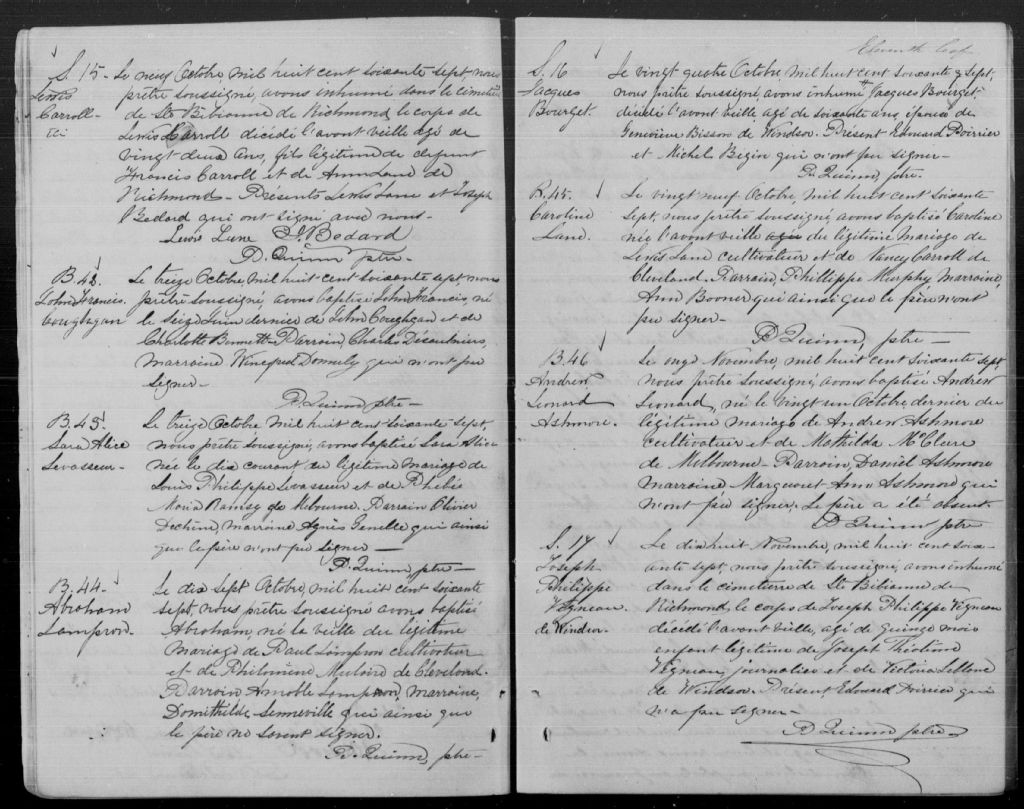 S. 15-
Lewis
Carroll-
Le neuf Octobre, mil huit cent soixante sept, nous
prêtre soussigné, avons inhumé dans le cimetière
de Ste Bibianne de Richmond le corps de
Lewis Carroll décédé l'avant veille agé de
vingt deux ans, fils légitime de defunt
Francis Carroll et de Ann Lane de
Richmond- Présents Lewis Lane et Joseph
Bedard qui ont signé avec nous-
Lewis Lane J. Bedard
P. Quinn ptre-
B. 42.
John Francis
Coughgan
Le treize Octobre mil huit cent soixante sept, nous
prêtre soussigné, avons baptisé John Francis, né
le seize Juin dernier de John Coughgan et de
Charlotte Bennett- Parrain, Charles Désaulniers,
marraine Winefred Donnely qui n'ont pu
signer-
P. Quinn ptre-
B. 43.
Sara Alice
Levasseur-
Le treize Octobre mil huit cent soixante sept,
nous prêtre soussigné, avons baptisé Sara Alice
née le dix courant du légitime mariage de
Louis Philippe Levasseur et de Phebé
Maria Ramsy de Melbourne. Parrain Olivier
Dechêne, marraine Agnès Genelle qui ainsi
que le père n'ont pu signer-
P. Quinn ptre-
B. 44-
Abraham
Lampron.
Le dix sept Octobre, mil huit cent soixante
sept, nous prêtre soussigné avons baptisé
Abraham, né la veille du légitime
mariage de Paul Lampron cultivateur
et de Philomène de Cleveland.
Parrain Arnoble Lampron, marraine,
Domithilde Senneville qui ainsi que
le père ne savent signer.
P. Quinn ptre-
S. 16
Jacques
Bourget.
Le vingt quatre Octobre, mil huit cent soixante & sept,
nous prêtre soussigné, avons inhumé Jacques Bourget
décédé l'avant veille, agé de soixante ans, épouse de
Geneviève Bisson de Windsor. Présent Edouard Poirrier
et Michel Bégin qui n'ont pu signer-
P. Quinn, ptre.
B. 45-
Caroline
Lane.
Le vingt neuf Octobre, mil huit cent soixante
sept, nous prêtre soussigné, avons baptisé Caroline
née l'avant veille agée du légitime mariage de
Lewis Lane cultivateur et de Nancy Carroll de
Cleveland- Parrain, Phillippe Murphy, marraine,
Ann Booner qui ainsi que le père n'ont
pu signer-
P Quinn, ptre-
B. 46
Andrew
Leonard
Ashmore.
Le onze Novembre, mil huit cent soixante sept,
nous prêtre soussigné, avons baptisé Andrew
Leonard, né le vingt un Octobre dernier du
légitime mariage de Andrew Ashmore
cultivateur et de Mathilda McClure
de Melbourne- Parrain, Daniel Ashmore
marraine Margueret Ann Ashmore qui
n'ont pu signer. Le père a été absent.
P Quinn ptre
S. 17
Joseph
Philippe
Vigneau.
de Windsor.
Le dix huit Novembre, mil huit cent soix-
ante sept, nous prêtre soussigné, avons inhumé
dans le cimetière de Ste Bibianne de
Richmond, le corps de Joseph Philippe Vigneau
décédé l'avant veille, agé de quinze mois
enfant légitime de Joseph Théotime
Vigneau, journalier et de Victoria Leblanc
de Windsor. Présent Edouard Poirrier qui
n'a pu signer-
P Quinn ptre-